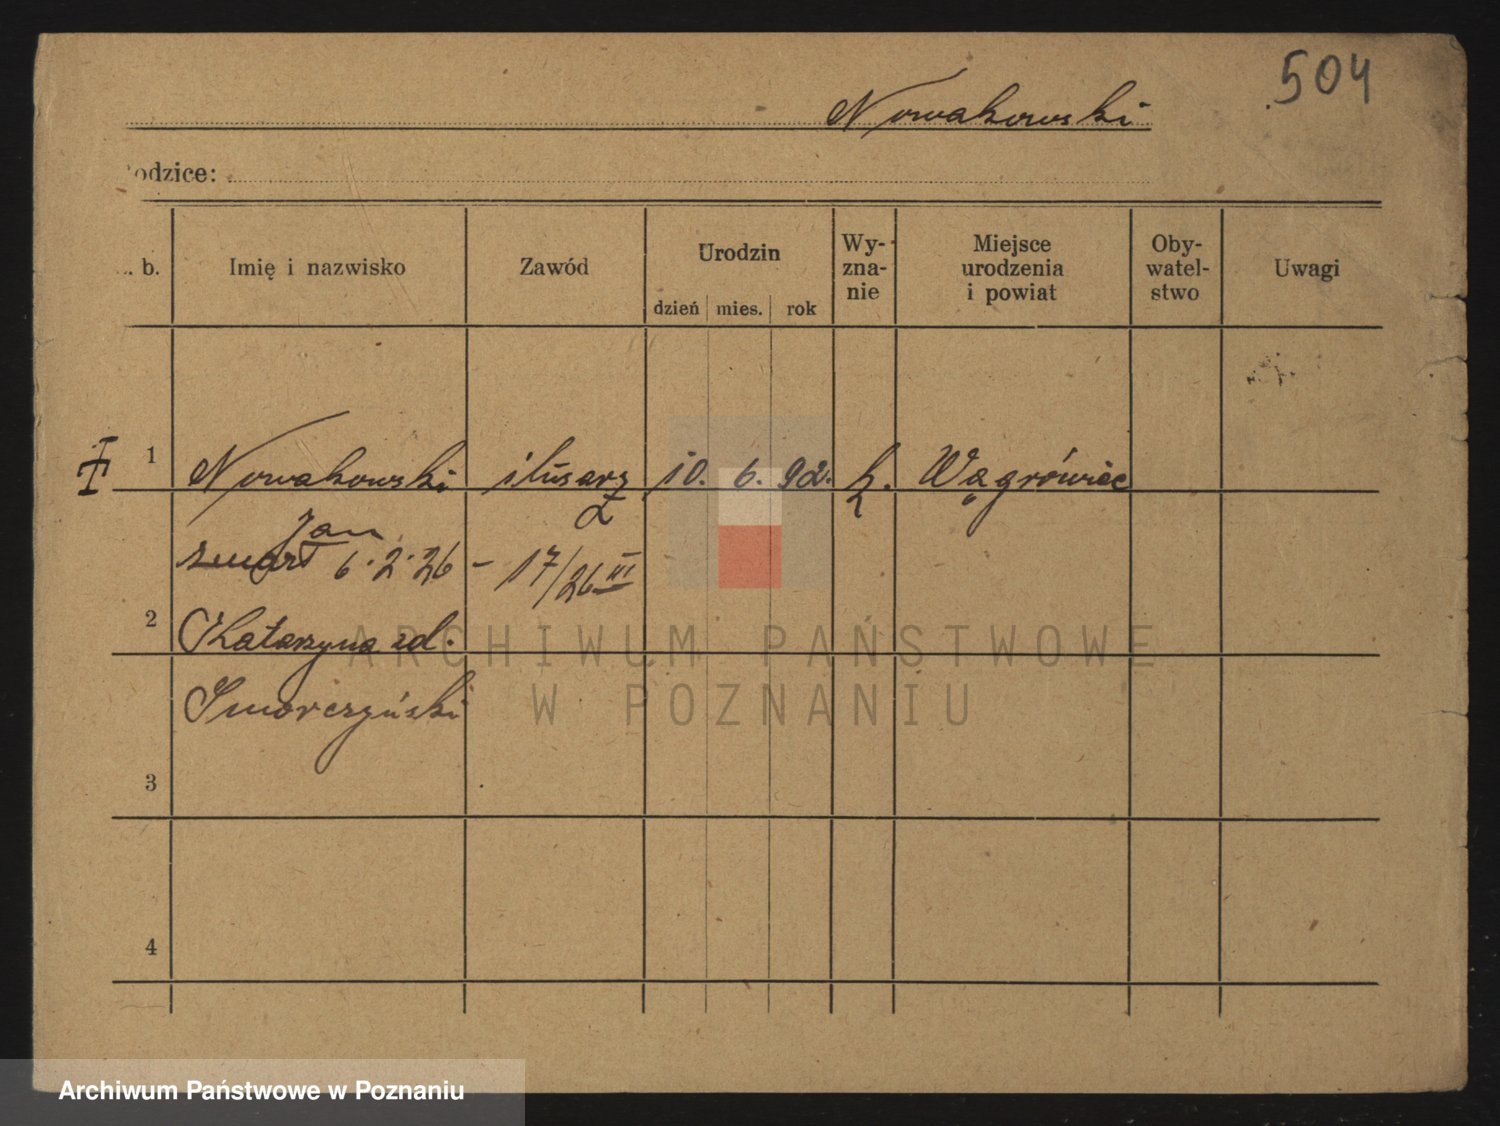 504
Nowakowski
odzice:
. b. Imię i nazwisko Zawód Urodzin dzień mies. rok Wy-zna-nie Miejsce urodzenia i powiat Oby-watel-stwo Uwagi
1 Nowakowski ślusarz 10. 6. 92. k. Wągrówiec
Jan
zmarł 6.2.26 - 17/26 III
2 Katarzyna zd.
Smorczyński
3
4
ARCHIWUM PAŃSTWOWE
W POZNANIU
Archiwum Państwowe w Poznaniu